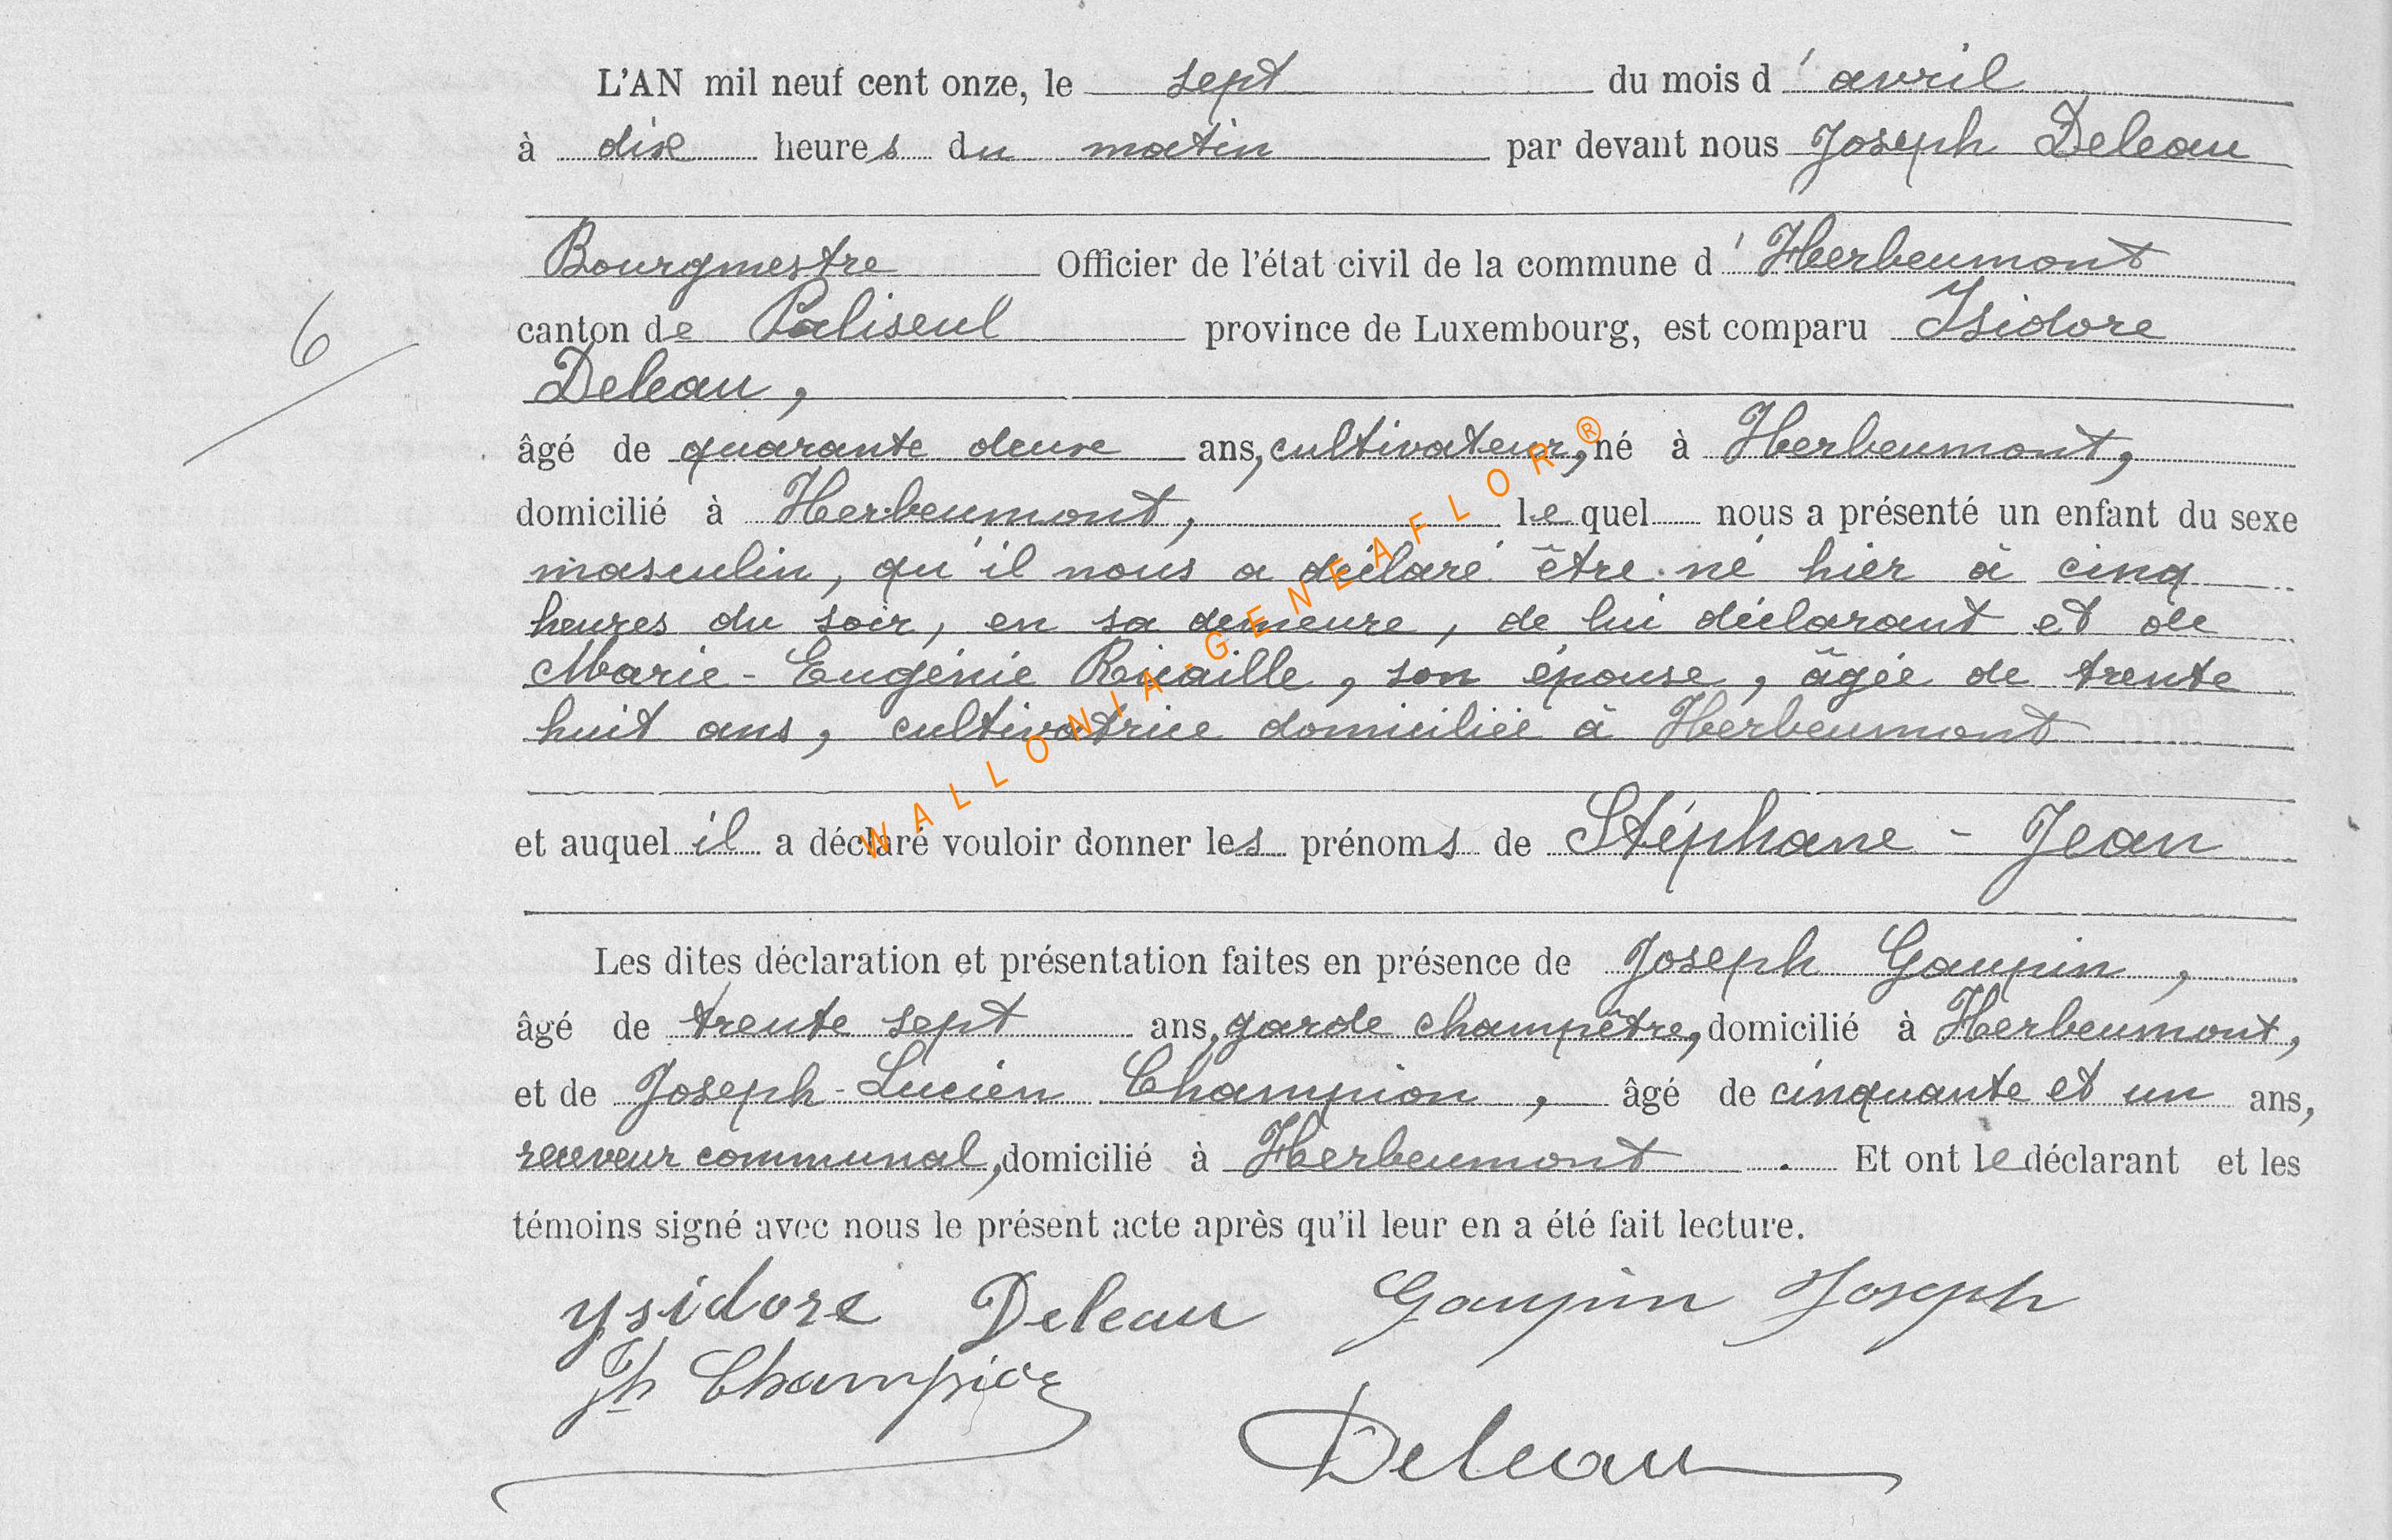 L'AN mil neuf cent onze, le sept du mois d'avril
à dix heures du matin par devant nous Joseph Deleau
Bourgmestre Officier de l'état civil de la commune d'Herbeumont
canton de Paliseul province de Luxembourg, est comparu Isidore
Deleau,
âgé de quarante deux ans, cultivateur, né à Herbeumont,
domicilié à Herbeumont, lequel nous a présenté un enfant du sexe
masculin, qu'il nous a déclaré être né hier à cinq
heures du soir, en sa demeure, de lui déclarant et de
Marie-Eugénie Ricaille, son épouse, âgée de trente
huit ans, cultivatrice domiciliée à Herbeumont
et auquel il a déclaré vouloir donner les prénoms de Stéphane - Jean
Les dites déclaration et présentation faites en présence de Joseph Gaupin,
âgé de trente sept ans, garde champêtre, domicilié à Herbeumont,
et de Joseph-Lucien Champion, âgé de cinquante et un ans,
receveur communal, domicilié à Herbeumont. Et ont le déclarant et les
témoins signé avec nous le présent acte après qu'il leur en a été fait lecture.
Ysidore Deleau Gaupin Joseph
Jh Champion
Deleau
6
WALLONIA-GENEAFLOR®